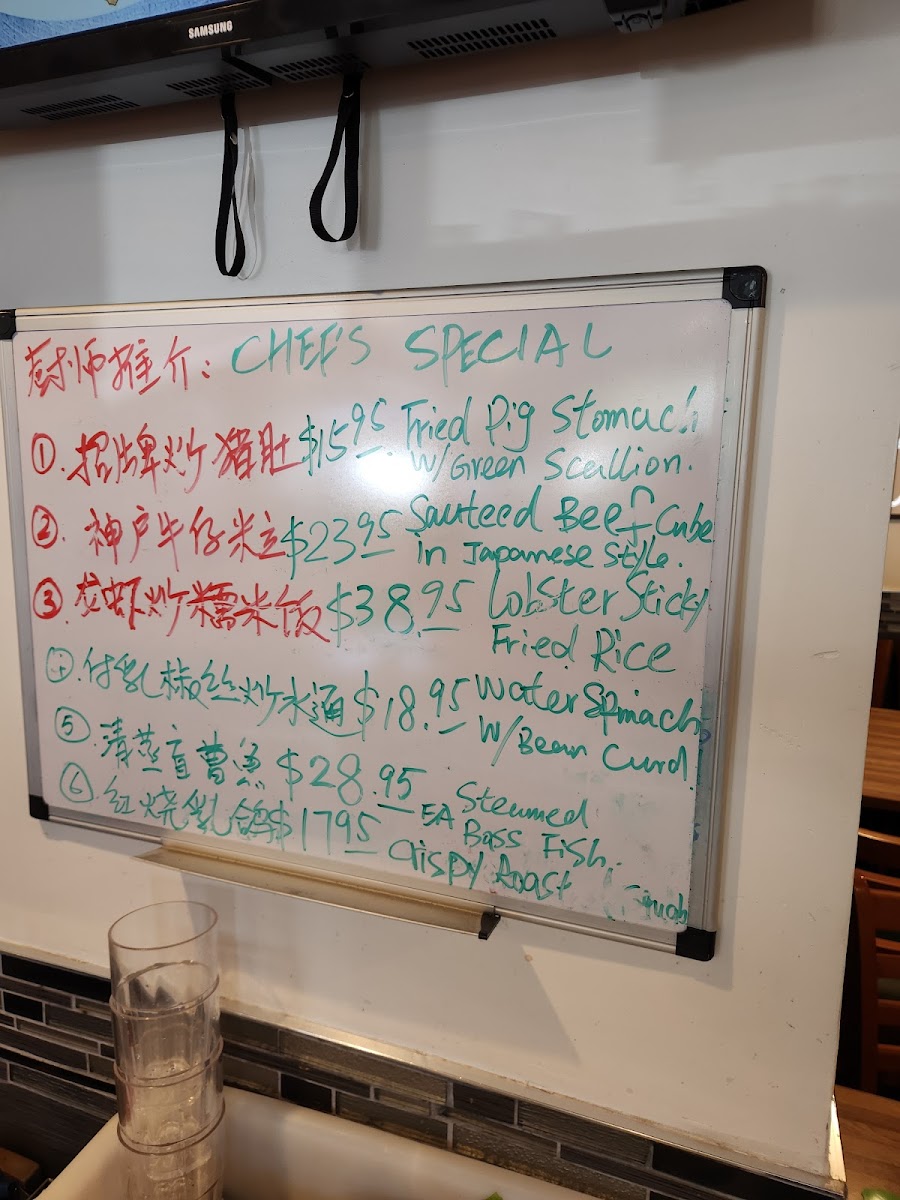 SAMSUNG
厨师推介: CHEF'S SPECIAL
①. 招牌炒猪肚 $15.95 Fried Pig Stomach
W/Green Scallion.
②. 神户牛仔米立 $23.95 Sauteed Beef Cube
in Japanese Style.
③ 龙虾炒糯米饭 $38.95 Lobster Sticky
Fried Rice
④. 付乳椒丝炒水通 $18.95 Water Spinach
W/Bean Curd
⑤. 清蒸盲曹鱼 $28.95 EA Steamed
Bass Fish.
⑥. 红烧乳鸽 $1795 Crispy Roast
Squab